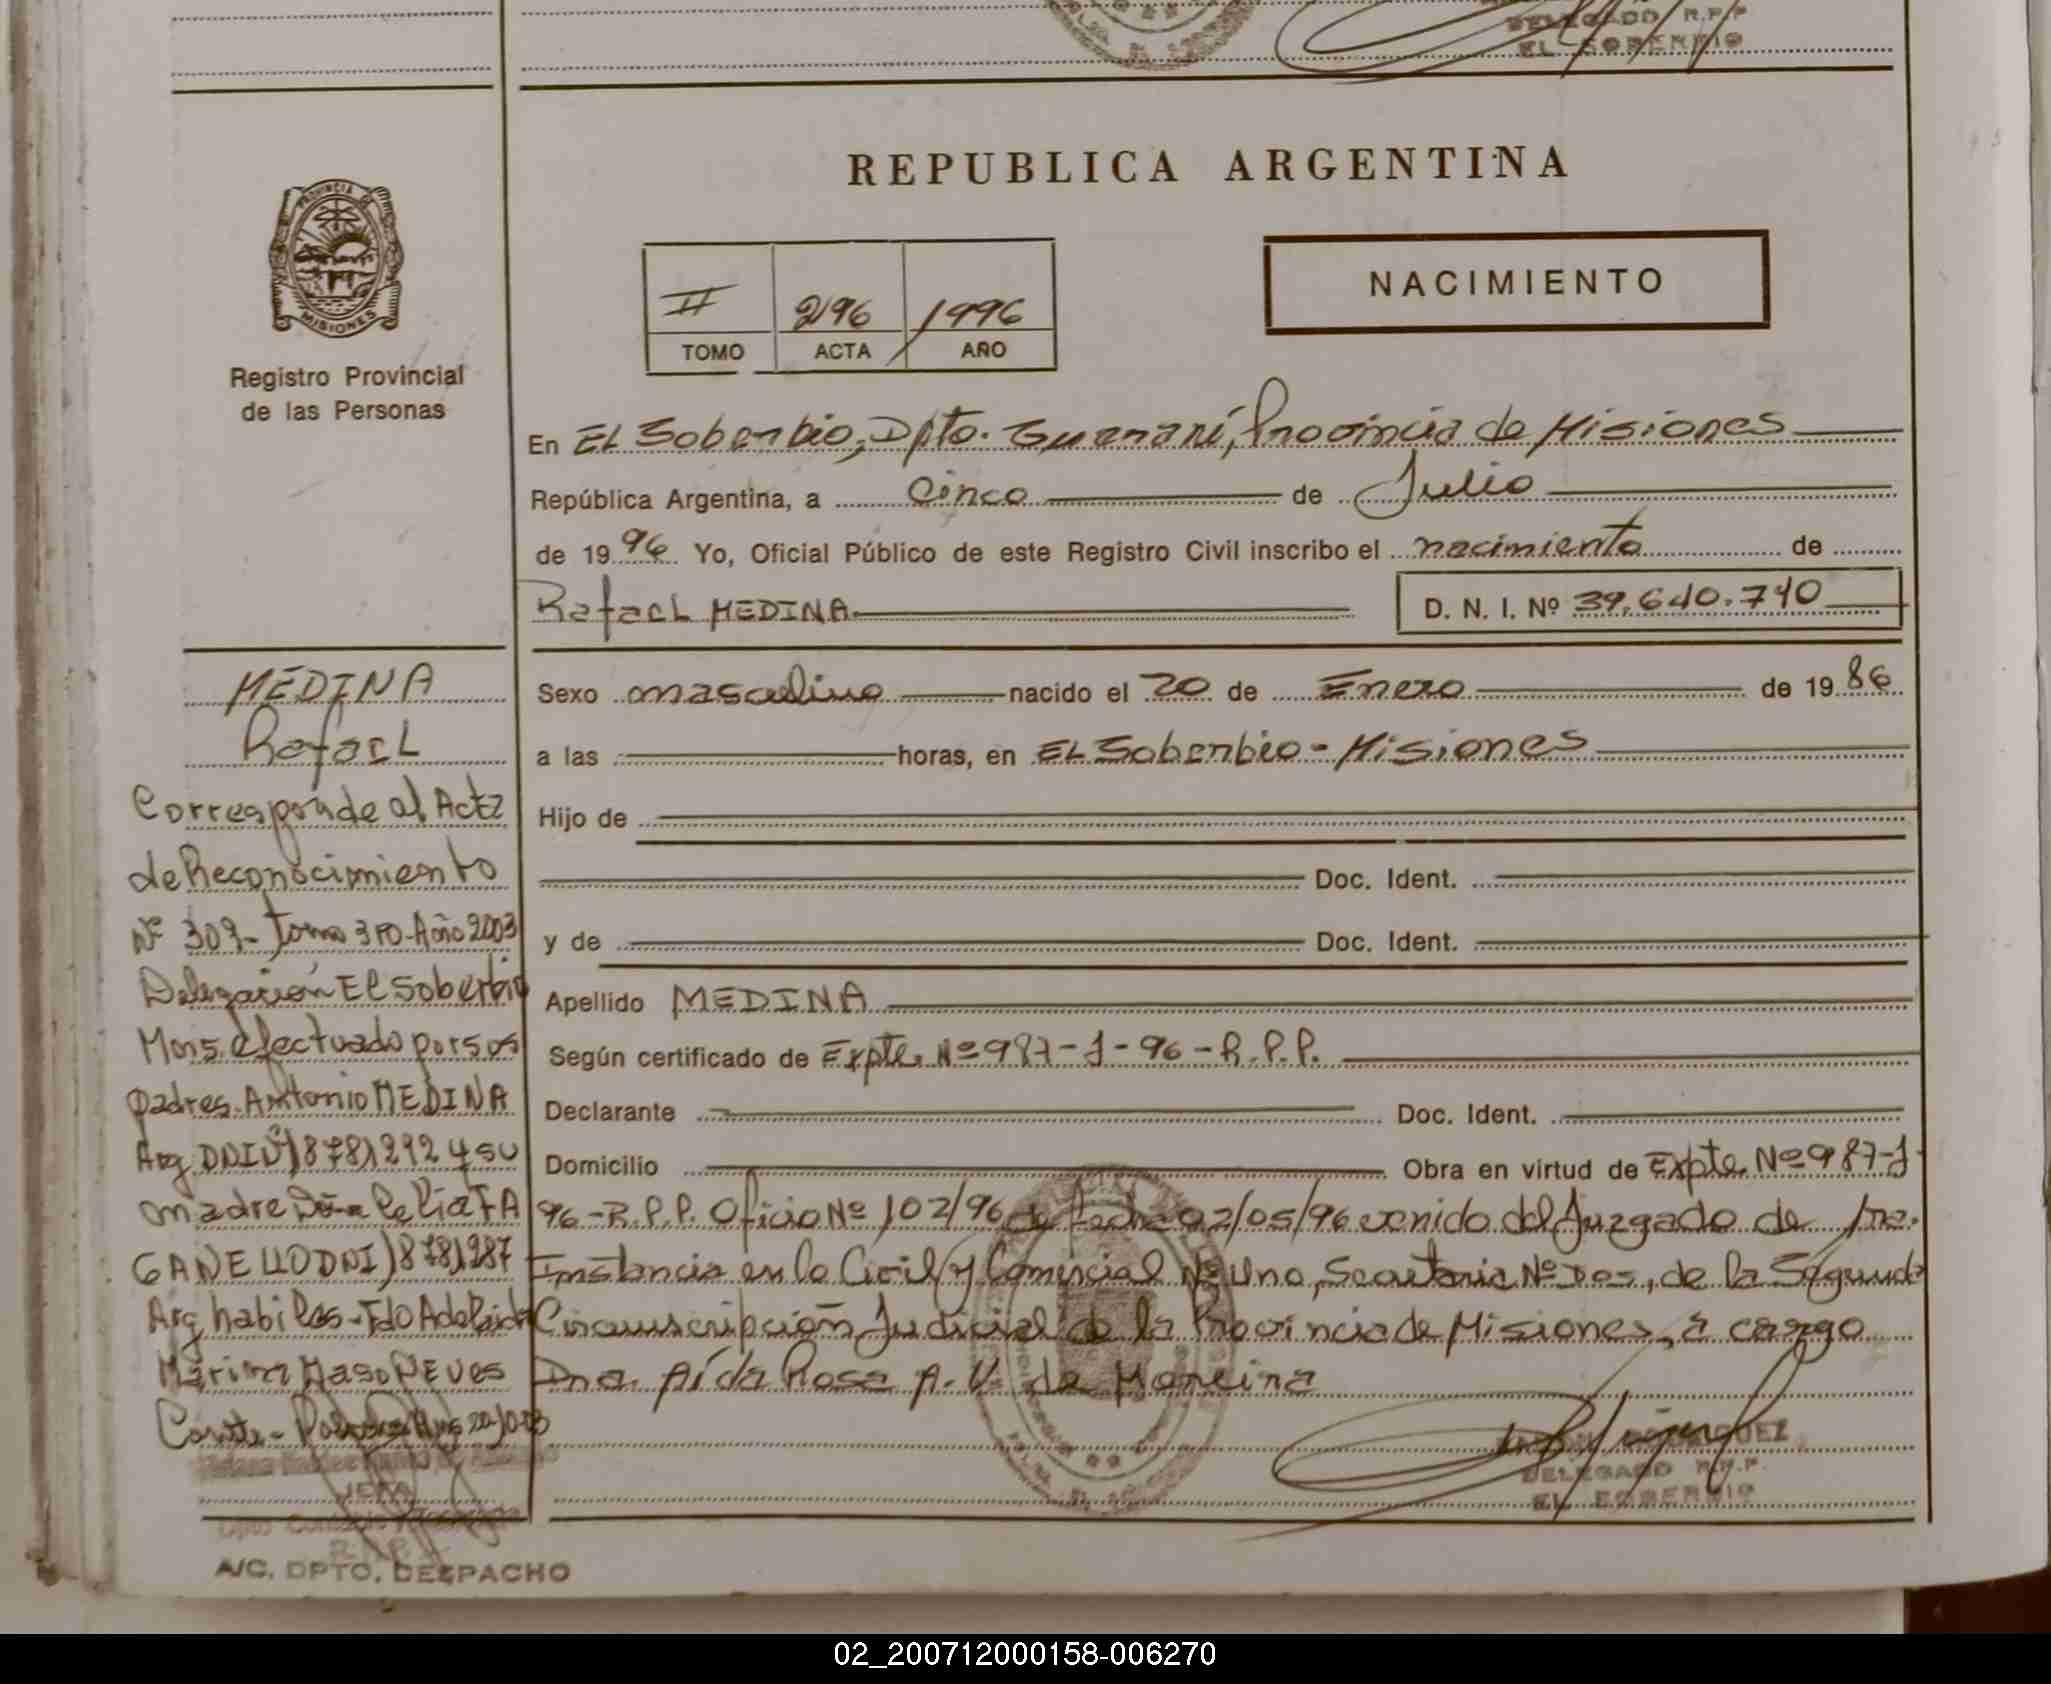 DELEGADO R.P.P
EL SOBERBIO
REPUBLICA ARGENTINA
PROVINCIA DE
MISIONES
Registro Provincial
de las Personas
II 2196 1996
TOMO ACTA AÑO
NACIMIENTO
En EL Soberbio, Dpto. Guarani, Provincia de Misiones
República Argentina, a Cinco de Julio
de 1996 Yo, Oficial Público de este Registro Civil inscribo el nacimiento de
Rafael MEDINA
D. N. I. Nº 39.640.740
Sexo masculino nacido el 20 de Enero de 1986
a las horas, en EL Soberbio - Misiones
Hijo de
Doc. Ident.
y de Doc. Ident.
Apellido MEDINA
Según certificado de Expte. Nº 987-J-96-R.P.P.
Declarante Doc. Ident.
Domicilio Obra en virtud de Expte. Nº 987-J-
96-R.P.P. Oficio Nº 102/96 de fecha 02/05/96 venido del Juzgado de 1ra.
Instancia en lo Civil y Comercial Nº Uno, Secretaria Nº Dos, de la Segunda
Circunscripción Judicial de la Provincia de Misiones, a cargo
Dra. Aída Rosa A. V. de Moreira
DELEGADO R.P.P.
EL SOBERBIO
MEDINA
Rafael
Corresponde al Acta
de Reconocimiento
Nº 309- Tomo 3ro-Año 2003
Delegación El Soberbio
Mnes. efectuado por sus
padres. Antonio MEDINA
Arg. DNI Nº 18781292 y su
madre Doña Celia FA
GANELLO DNI 18781287
Arg. habiles-Fdo Adelaida
Marina
Conste-
JEFA
A/C. DPTO. DESPACHO
02_200712000158-006270